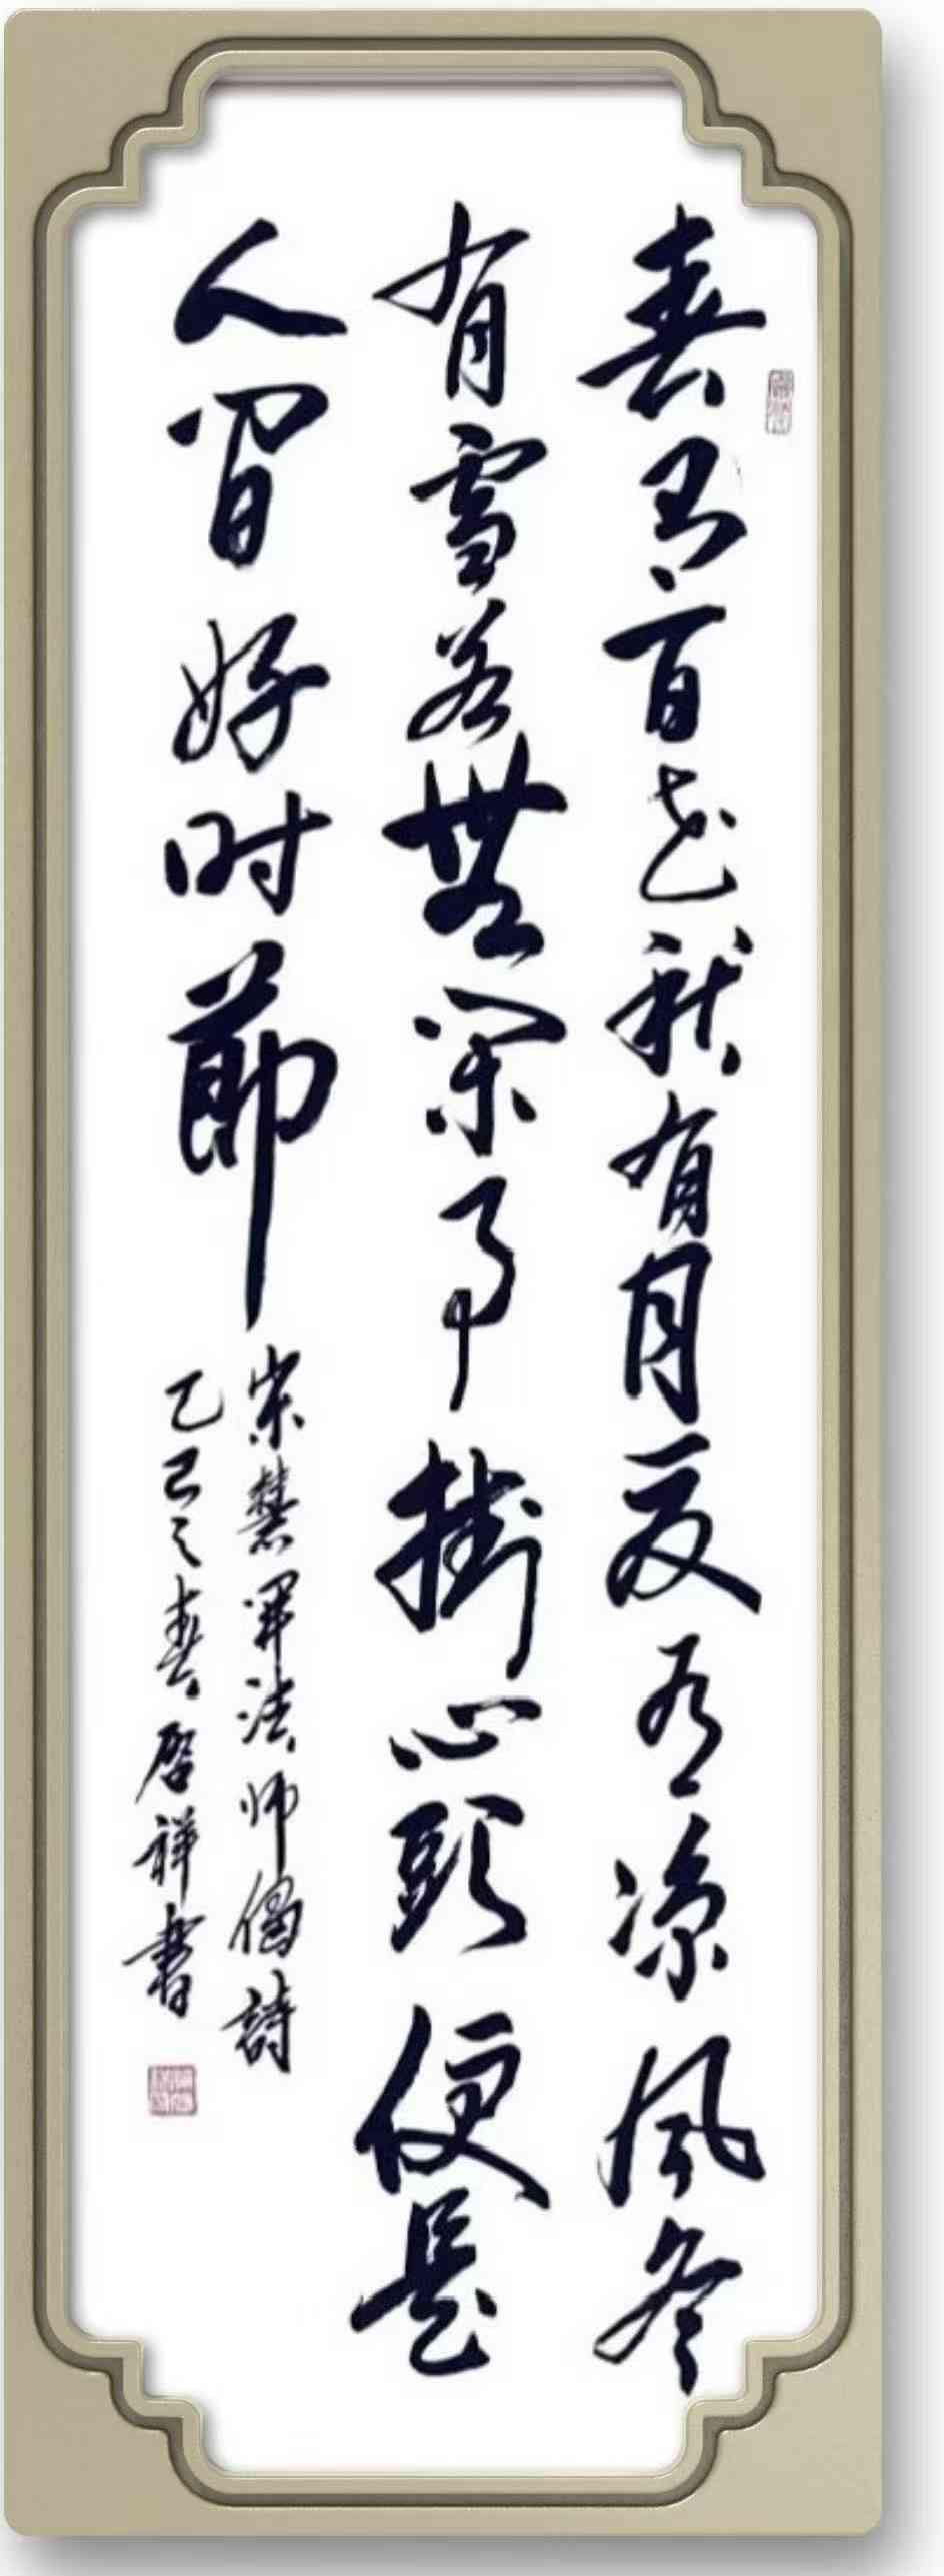 春有百花秋有月夏有凉風冬
有雪若無閑事掛心頭便是
人間好时節
宋慧開法师偈詩
乙巳之春啓祥書